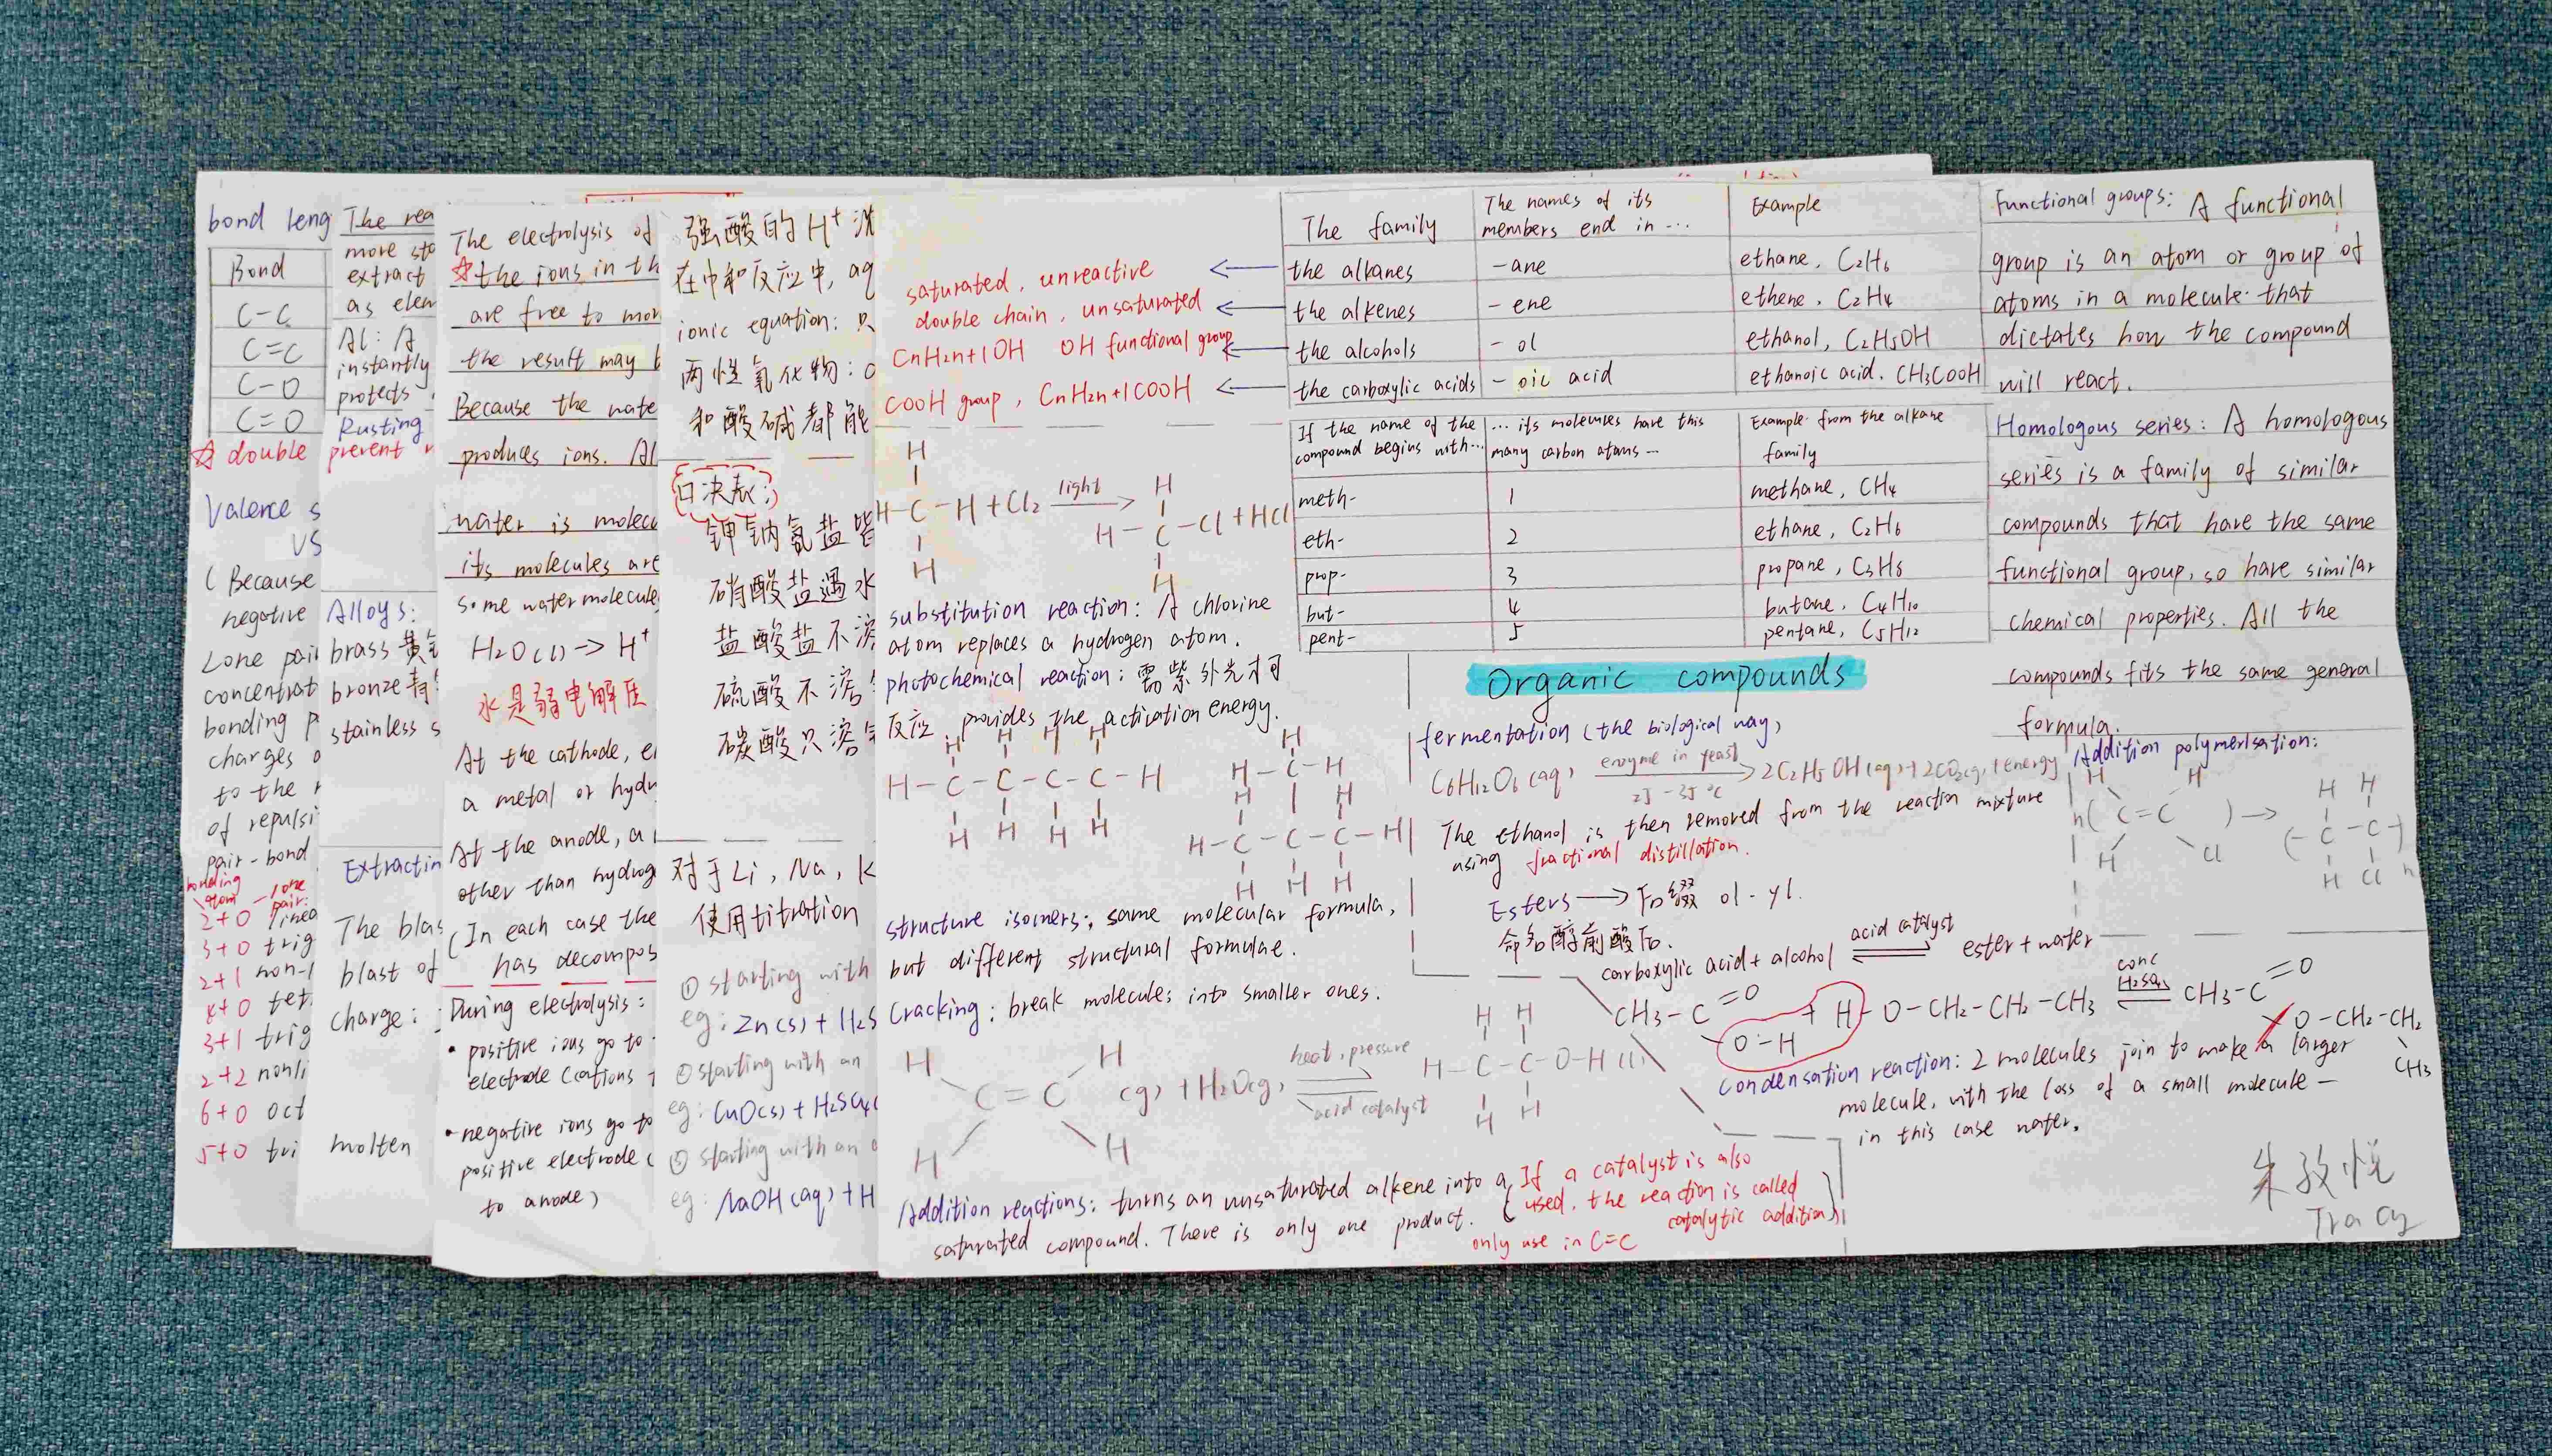 bond leng
Bond
C-C
C=C
C-O
C=O
☆ double
Valence s
VS
( Because
negative
Lone pai
concentrat
bonding p
charges o
to the r
of repulsi
pair-bond
bonding
atom
lone
pair:
2+0 linea
3+0 trig
2+1 non-l
4+0 tet
3+1 trig
2+2 nonli
6+0 oct
5+0 tri
The rea
more sta
extract
as elem
Al: A
instantly
protects
Rusting
prevent
Alloys:
brass 黄
bronze 青
stainless s
Extractin
The blas
blast of
charge:
molten
The electrolysis of
☆the ions in th
are free to mov
the result may b
Because the wate
produces ions. Al
water is molecu
its molecules are
some water molecule
H2O(l)→H+
水是弱电解质
At the cathode, el
a metal or hydr
At the anode, a
other than hydrog
(In each case the
has decompos
During electrolysis:
• positive ions go to
electrode (cations
• negative ions go to
positive electrode (
to anode)
强酸的 H+ 洗
在中和反应中, aq
ionic equation: 只
两性氧化物: a
和酸碱都能
口决表:
钾钠氨盐皆
硝酸盐遇水
盐酸盐不溶
硫酸不溶
碳酸只溶
对于Li, Na, K
使用titration
① starting with
eg: Zn(s) + H2S
② starting with an
eg: CuO(s) + H2SO4(
③ starting with an
eg: NaOH(aq) + H
saturated, unreactive
double chain, unsaturated
CnH2n+1OH OH functional group
COOH group, CnH2n+1COOH
The family
The names of its
members end in ...
Example
the alkanes -ane ethane, C2H6
the alkenes -ene ethene, C2H4
the alcohols -ol ethanol, C2H5OH
the carboxylic acids -oic acid ethanoic acid. CH3COOH
If the name of the
compound begins with...
... its molecules have this
many carbon atoms ...
Example from the alkane
family
meth- 1 methane, CH4
eth- 2 ethane, C2H6
prop- 3 propane, C3H8
but- 4 butane, C4H10
pent- 5 pentane, C5H12
H
H-C-H+Cl2 light H
H-C-Cl+HCl
H
H
substitution reaction: A chlorine
atom replaces a hydrogen atom.
photochemical reaction: 需紫外光才可
反应. provides the activation energy.
H H H H
H-C-C-C-C-H
H H H H
H
H-C-H
H H
H-C-C-C-H
H H H
structure isomers: same molecular formula,
but different structural formulae.
Cracking: break molecules into smaller ones.
H H
C=C (g) + H2O(g)
H H
heat, pressure
acid catalyst
H H
H-C-C-O-H(l)
H H
Addition reactions: turns an unsaturated alkene into a
saturated compound. There is only one product.
(If a catalyst is also
used, the reaction is called
catalytic addition)
only use in C=C
Organic compounds
fermentation (the biological way)
C6H12O6(aq) enzyme in yeast 2C2H5OH(aq)+2CO2(g)+energy
25-35 °C
The ethanol is then removed from the reaction mixture
using fractional distillation.
Esters→后缀 ol-yl.
命名醇前酸后.
carboxylic acid + alcohol acid catalyst ester + water
CH3-C=O
O-H
+ H-O-CH2-CH2-CH3
conc
H2SO4
CH3-C=O
O-CH2-CH2
CH3
Condensation reaction: 2 molecules join to make a larger
molecule, with the loss of a small molecule —
in this case water.
Functional groups: A functional
group is an atom or group of
atoms in a molecule that
dictates how the compound
will react.
Homologous series: A homologous
series is a family of similar
compounds that have the same
functional group, so have similar
chemical properties. All the
compounds fits the same general
formula.
Addition polymerisation:
H H
n( C=C ) →
H Cl
H H
(-C-C-)
H Cl n
朱孜悦
Tracy